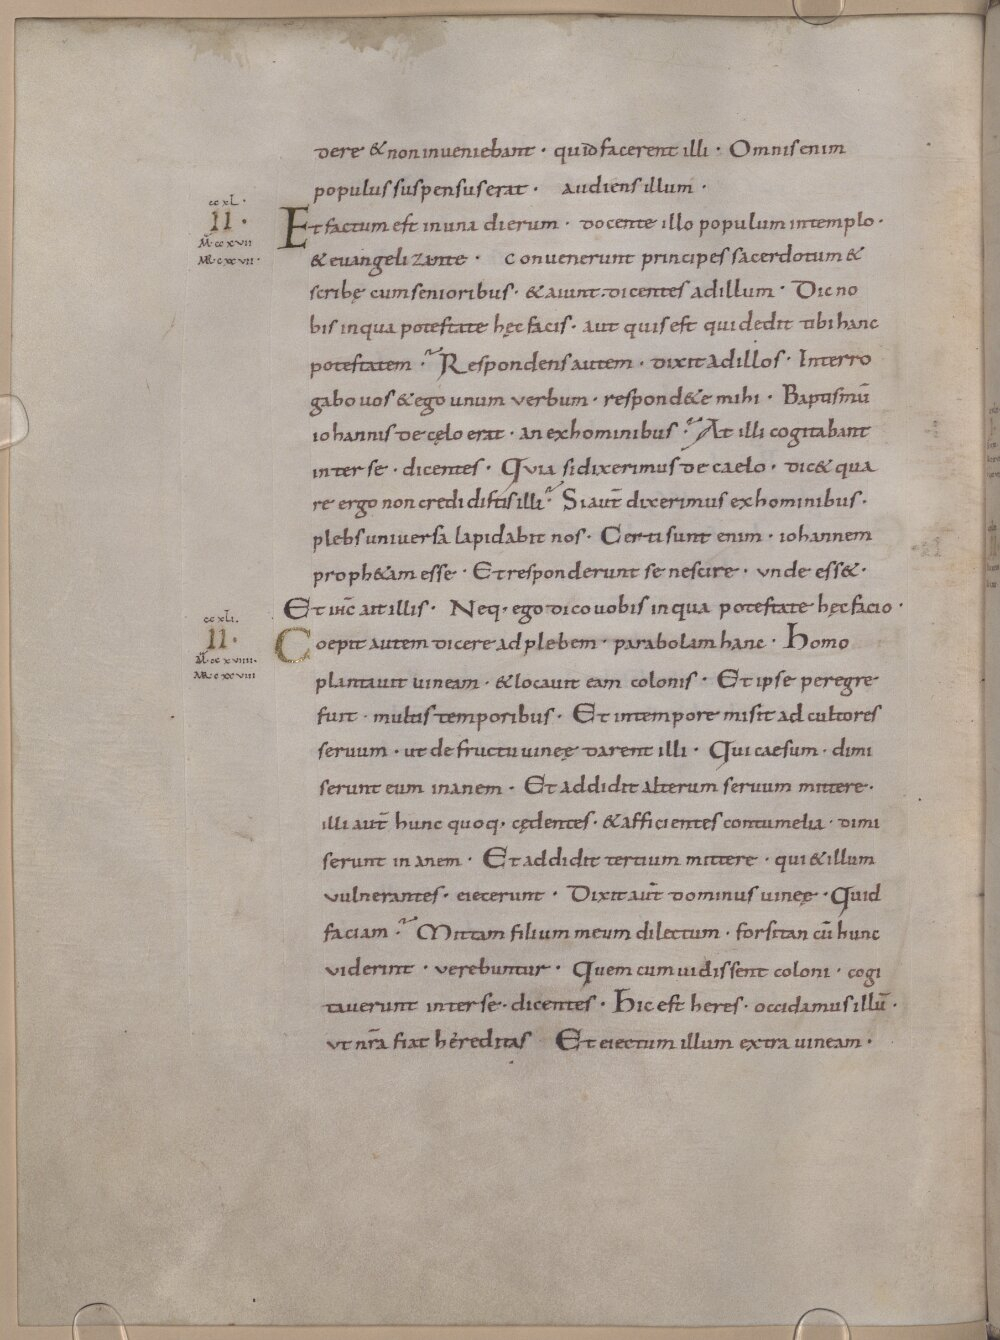 dere & non inueniebant · quid facerent illi · Omnis enim
populus suspensus erat · audiens illum ·
ccxL ·
II ·
Mt ccxvii
MR cxxvii ·
Et factum est in una dierum · docente illo populum in templo ·
& euangelizante · Conuenerunt principes sacerdotum &
scribę cum senioribus · & aiunt dicentes ad illum · Dic no
bis in qua potestate hęc facis · aut quis est qui dedit tibi hanc
potestatem · Respondens autem · dixit ad illos · Interro
gabo uos & ego unum verbum · respond&e mihi · Baptismū
iohannis de cęlo erat · an ex hominibus · At illi cogitabant
inter se · dicentes · Quia si dixerimus de caelo · dic& qua
re ergo non credidistis illi · Si aut̄ dixerimus ex hominibus ·
plebs uniuersa lapidabit nos · Certi sunt enim · iohannem
proph&am esse · Et responderunt se nescire · unde ess& ·
Et ih̄c ait illis · Neq · ego dico uobis in qua potestate hęc facio ·
ccxLi ·
II ·
Mt ccxviiii ·
MR cxxviii
Coepit autem dicere ad plebem · parabolam hanc · Homo
plantauit uineam · & locauit eam colonis · Et ipse peregre
fuit · multis temporibus · Et in tempore misit ad cultores
seruum · ut de fructu uineę darent illi · Qui caesum · dimi
serunt eum inanem · Et addidit alterum seruum mittere ·
illi aut̄ hunc quoq · cędentes · & afficientes contumelia · dimi
serunt inanem · Et addidit tertium mittere · qui & illum
vulnerantes · eiecerunt · Dixit aut̄ dominus uineę · Quid
faciam · Mittam filium meum dilectum · forsitan cū hunc
viderint · verebuntur · Quem cum uidissent coloni · cogi
tauerunt inter se · dicentes · Hic est heres · occidamus illū ·
ut nr̄a fiat hereditas Et eiectum illum extra uineam ·